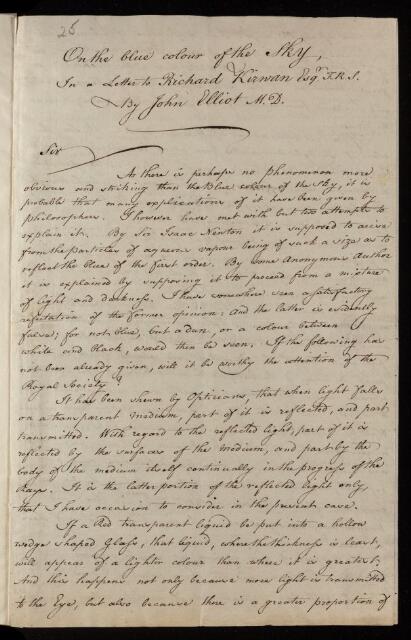 26
On the blue colour of the Sky,
In a Letter to Richard Kirwan Esqr. F.R.S.
By John Elliot M.D.
Sir
As there is perhaps no Phenomenon more
obvious and striking than the Blue colour of the Sky, it is
probable that many explications of it have been given by
Philosophers. I however have met with but two attempts to
explain it. By Sir Isaac Newton it is supposed to arise
from the particles of aqueous vapour being of such a size as to
reflect the Blue of the first order. By some Anonymous Author
it is explained by supposing it to proceed from a mixture
of light and darkness. I have somewhere seen a satisfactory
refutation of the former opinion: And the latter is evidently
false; for not blue, but a dun, or a colour between
white and black, would then be seen. If the following has
not been already given, will it be worthy the attention of the
Royal Society?
It has been shewn by Opticians, that when light falls
on a transparent medium, part of it is reflected, and part
transmitted. With regard to the reflected light, part of it is
reflected by the surfaces of the medium, and part by the
body of the medium itself continually in the progress of the
Rays. It is the latter portion of the reflected light only,
that I have occasion to consider in the present case.
If a Red transparent liquid be put into a hollow
wedge shaped Glass, that liquid, where the thickness is least,
will appear of a lighter colour than where it is greatest;
And this happens not only because more light is transmitted
to the Eye, but also because there is a greater proportion of